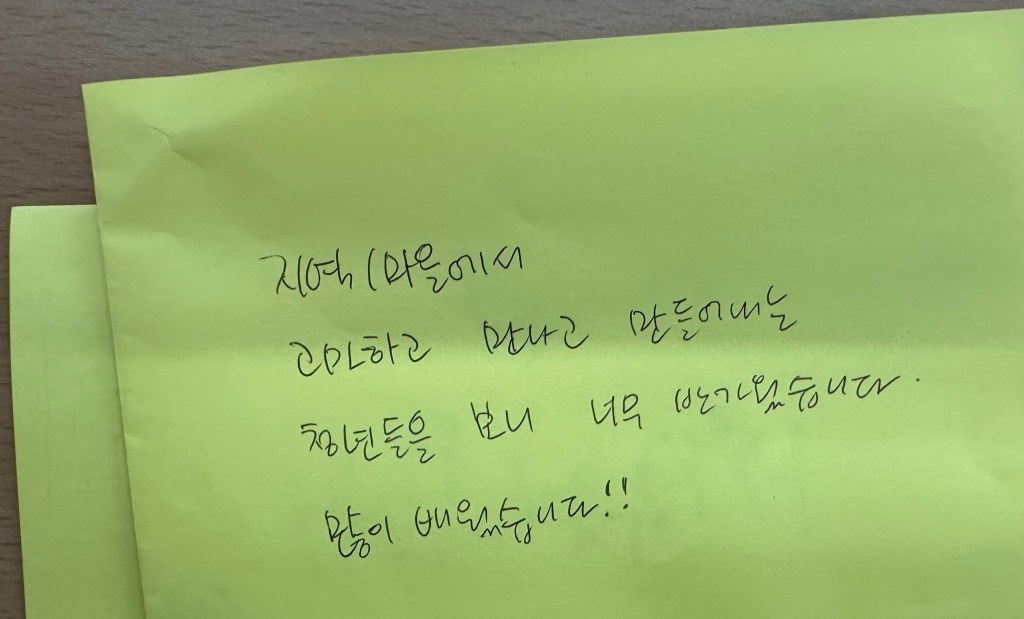 지역/마을에서
고민하고 만나고 만들어내는
청년들을 보니 너무 반가웠습니다.
많이 배웠습니다!!